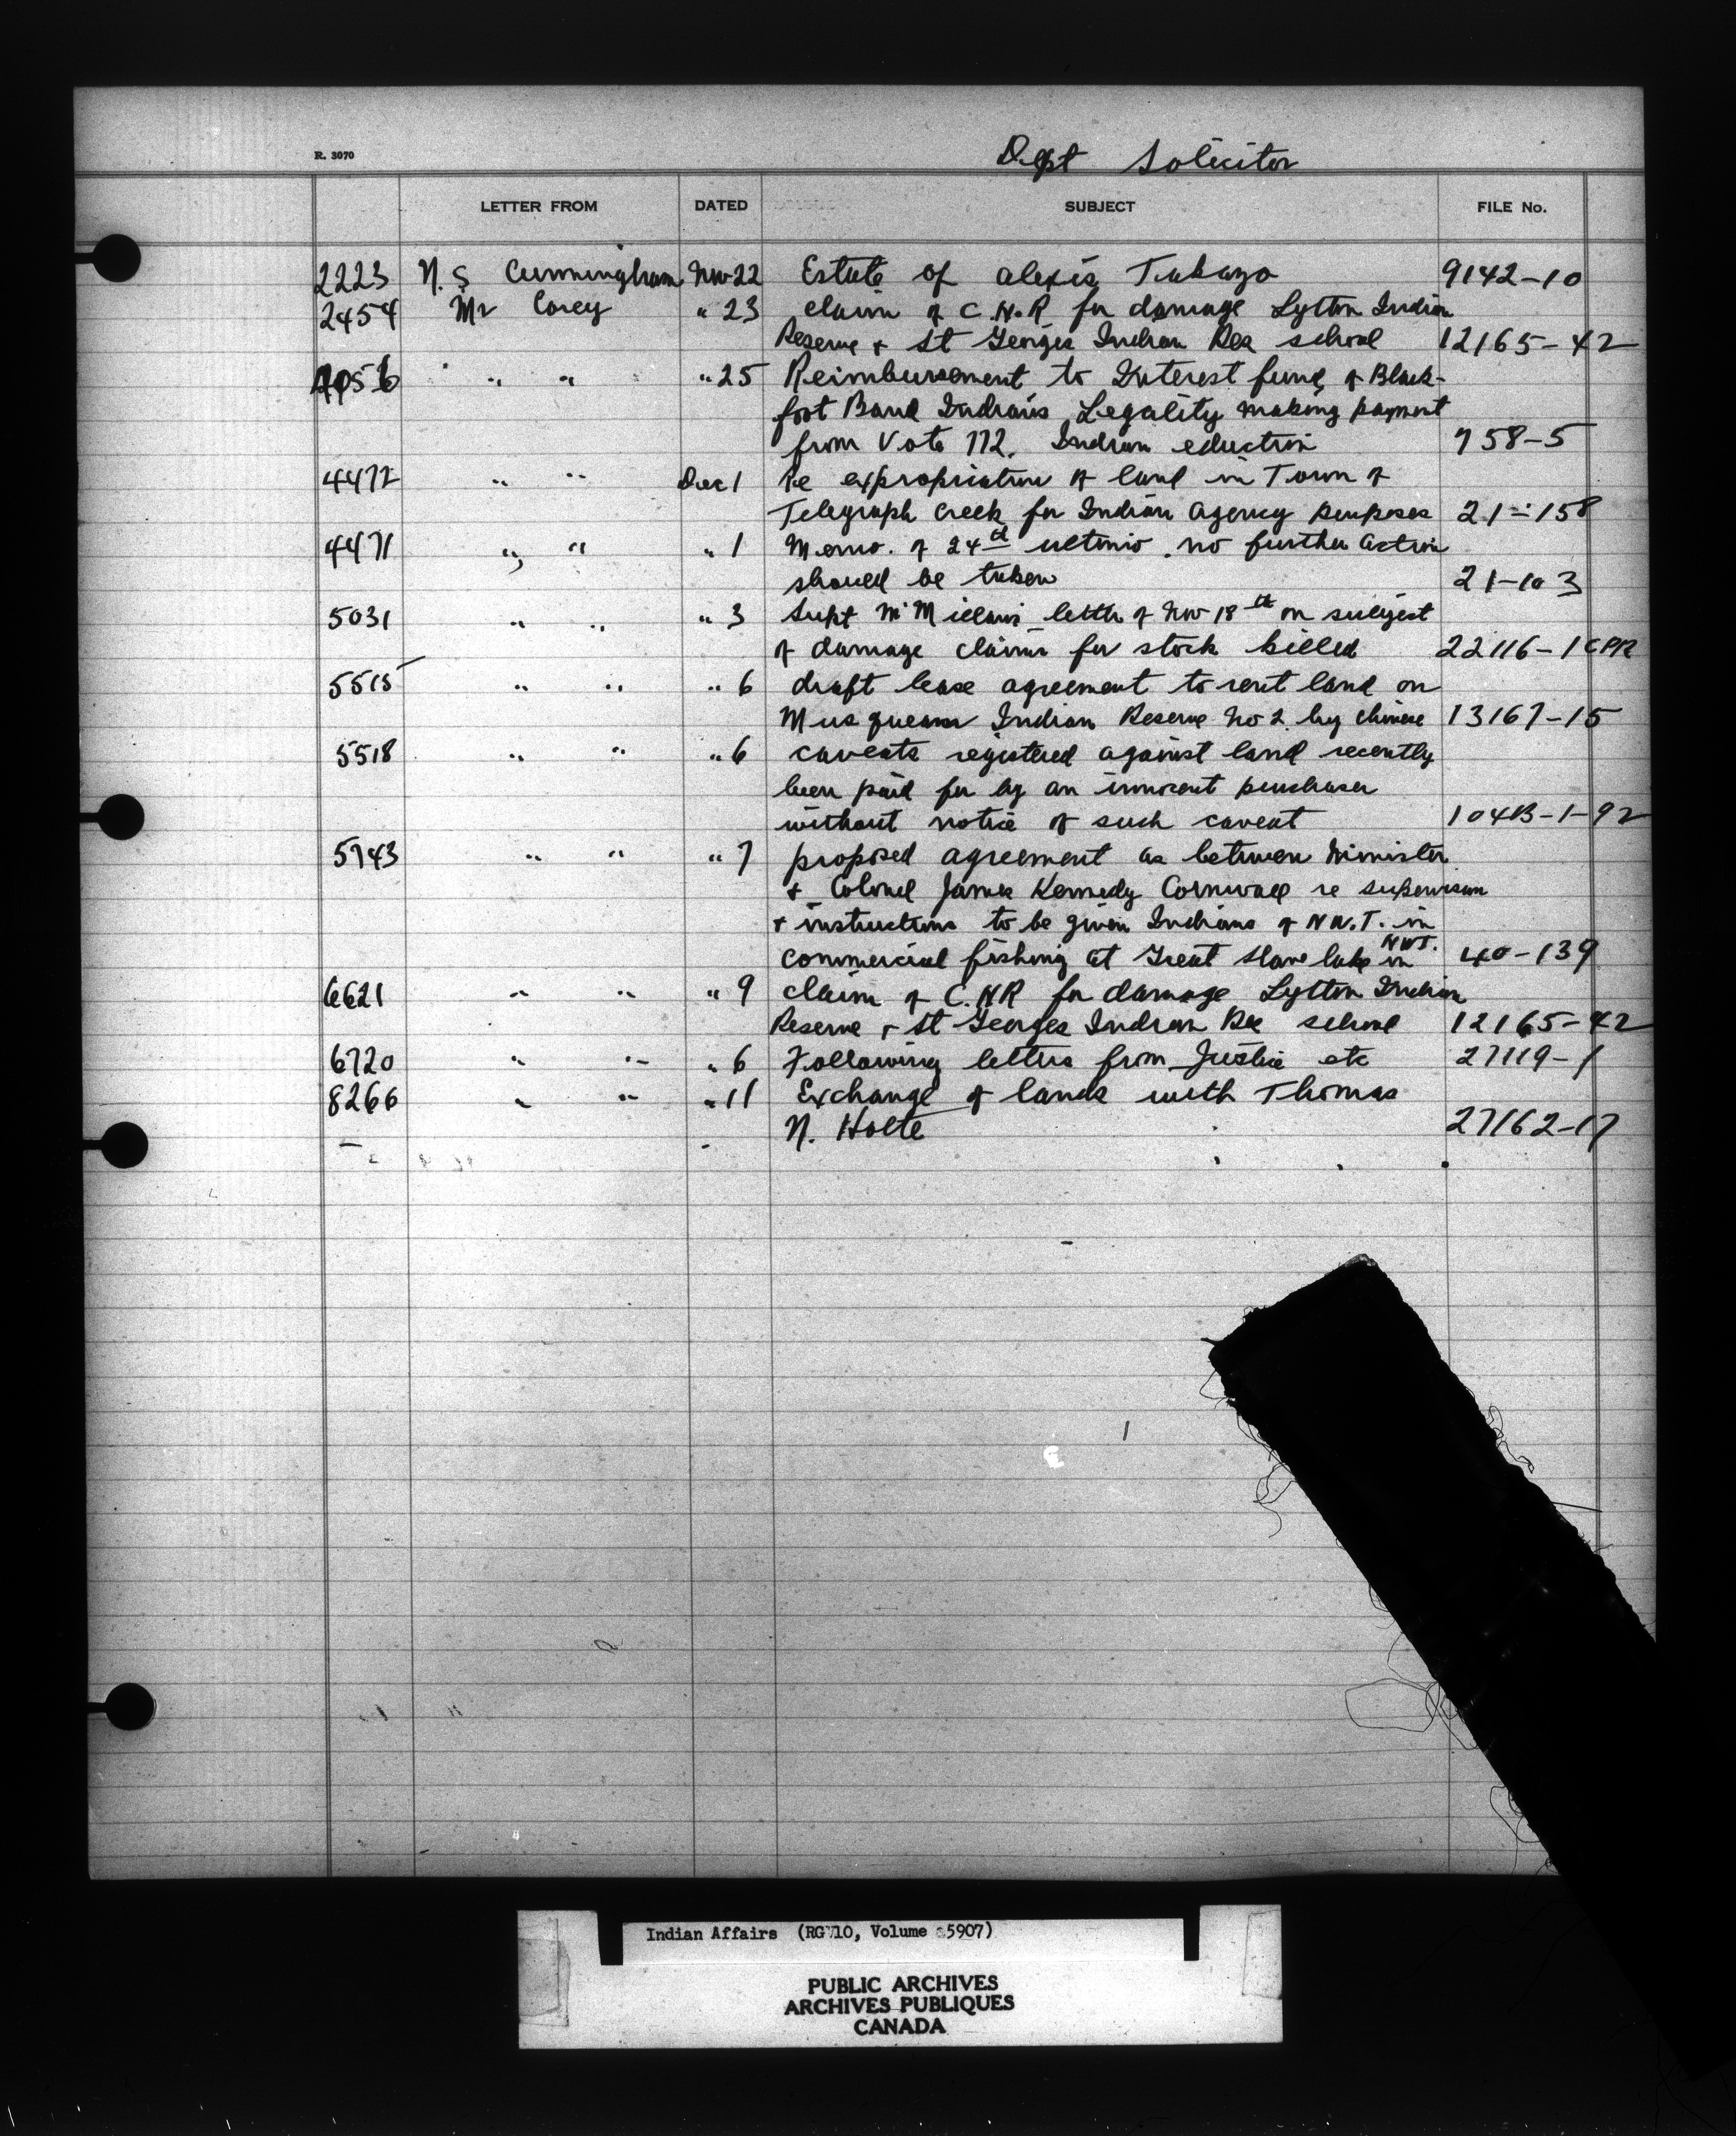 R. 3070
Dept Solicitor
LETTER FROM DATED SUBJECT FILE No.
2223 N. S Cunningham Nov 22 Estate of Alexis 9142-10
2454 Mr Corey " 23 claim of C.N.R for damage Lytton Indian
Reserve + St Georges Indian Res school 12165-42
" " " 25 Reimbursement to Interest fund of Black-
foot Band Indians Legality making payment
from Vote 172. Indian eduction 758-5
4472 " " Dec 1 Re expropriation of land in Town of
Telegraph Creek for Indian Agency purposes 21-158
4471 " " " 1 Memo. of 24th ultimo. no further action
should be taken 21-103
5031 " " " 3 Supt McMillans letter of Nov 18th on subject
of damage claims for stock killed 22116-1 CPR
5515 " " " 6 draft lease agreement to rent land on
Musqueam Indian Reserve No 2 by Chinese 13167-15
5518 " " " 6 caveats registered against land recently
been paid for by an innocent purchaser
without notice of such caveat 104B-1-92
5743 " " " 7 proposed agreement as between Minister
+ Colonel James Kennedy Cornwall re supervision
+ instructions to be given Indians of N.W.T. in
commercial fishing at Great Slave lake in NWT. 40-139
6621 " " " 9 claim of C.NR for damage Lytton Indian
Reserve + St Georges Indian Res school 12165-42
6720 " " " 6 Following letters from Justice etc 27119-1
8266 " " " 11 Exchange of lands with Thomas
N. Holte 27162-17
Indian Affairs (RG 10, Volume 5907)
PUBLIC ARCHIVES
ARCHIVES PUBLIQUES
CANADA